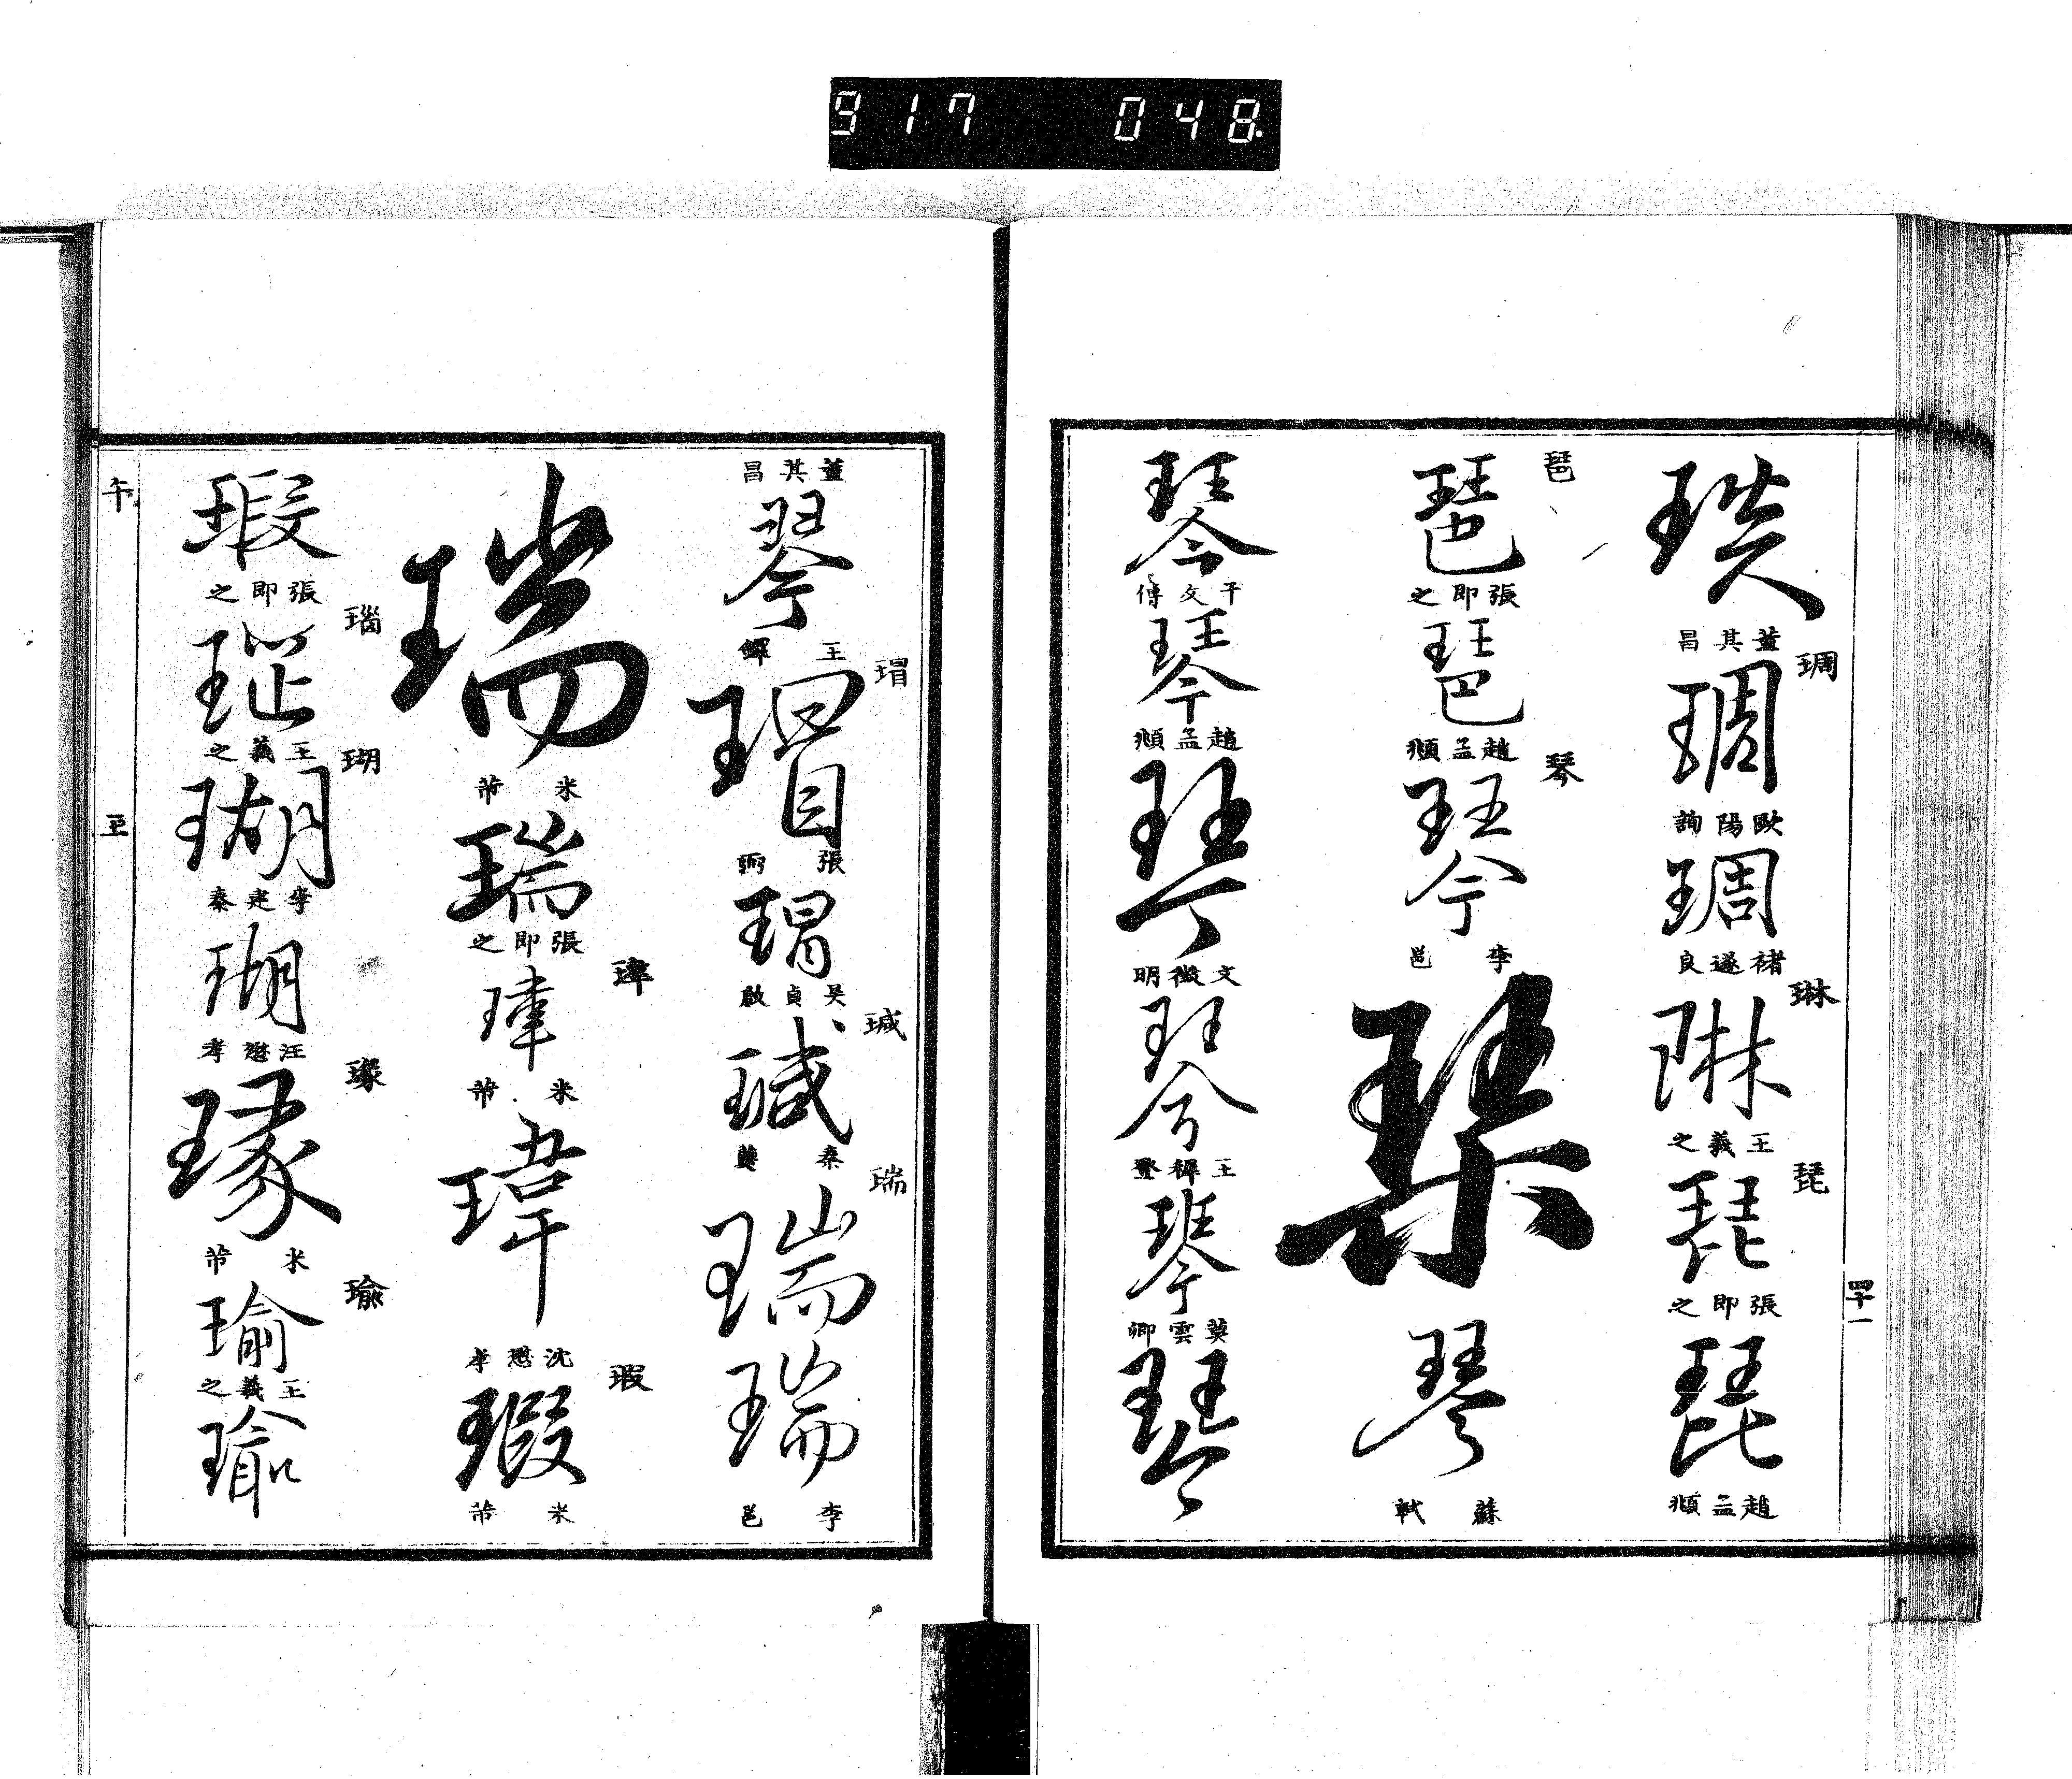 917 048
四十一
董其昌
琱
琱
歐陽詢
琱
褚遂良
琳
琳
王羲之
琵
琵
張即之
琵
趙孟頫
琶
琶
張即之
琶
趙孟頫
琴
琴
李邕
琴
琴
蘇軾
琴
干文傳
琴
趙孟頫
琴
文徵明
琴
王穉登
琴
莫雲卿
琴
董其昌
琴
王鐸
瑁
瑁
張弼
瑁
吳貞啟
瑊
瑊
秦夔
瑞
瑞
瑞
李邕
瑞
米芾
瑞
張即之
瑋
瑋
米芾
瑋
沈懋孝
瑕
瑕
米芾
瑕
張即之
瑙
瑙
王羲之
瑚
瑚
李建泰
瑚
汪懋孝
瑑
瑑
米芾
瑜
瑜
王羲之
瑜
午
玉